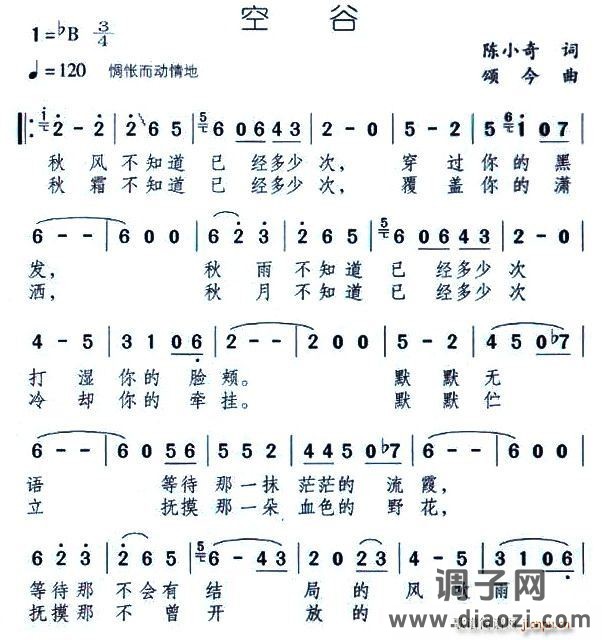 空 谷
1=♭B 3/4
陈小奇 词
♩=120 惆怅而动情地
颂 今 曲
秋 风 不 知 道 已 经多少 次, 穿 过 你 的 黑
秋 霜 不 知 道 已 经多少 次, 覆 盖 你 的 潇
6 - - | 6 0 0 | 6 2 3 | 2 6 5 | 6 06 43 | 2 - 0 | 5 - 2 | 0 6 43
发, 秋 雨 不 知 道 已 经多少 次
洒, 秋 月 不 知 道 已 经多少 次
4 - 5 | 3 1 0 6 | 2 - - | 2 0 0 | 5 - 2 | 4 5 0 ♭7
打 湿 你 的 脸 颊。 默 默 无
冷 却 你 的 牵 挂。 默 默 伫
6 - - | 6 0 56 | 5 5 2 | 44 5 0 ♭7 | 6 - - | 6 0 0
语 等待 那 一 抹 茫茫 的 流 霞,
立 抚摸 那 一 朵 血色 的 野 花,
等 待 那 不 会 有 结 局 的 风
抚 摸 那 不 曾 开 放 的
调子网
www.diaozi.com